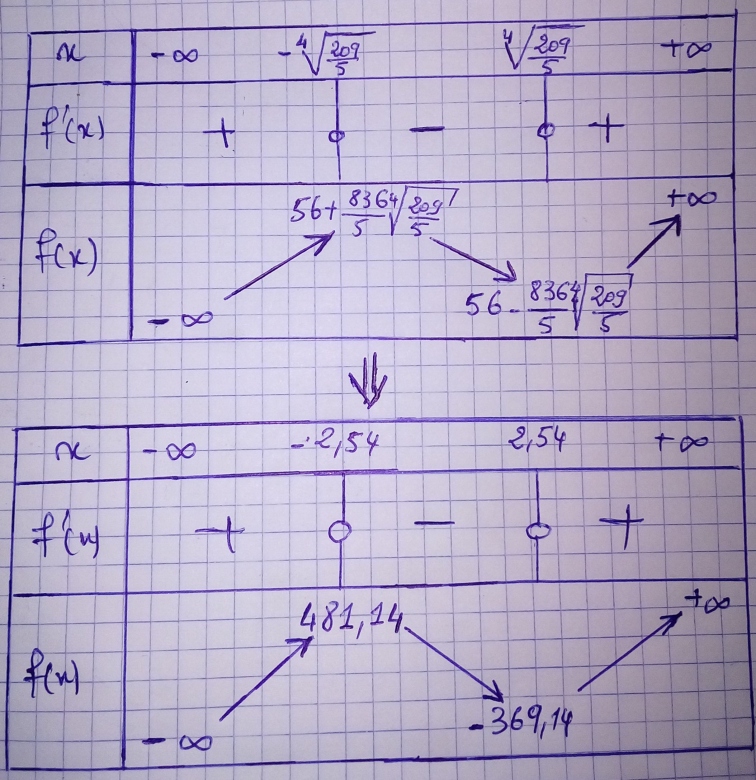 x -∞ -∜(209/5) ∜(209/5) +∞
f'(x) + 0 − 0 +
f(x) -∞ 56+836/5 ∜(209/5) 56-836/5 ∜(209/5) +∞
⇓
x -∞ -2,54 2,54 +∞
f'(x) + 0 − 0 +
f(x) -∞ 481,14 -369,14 +∞